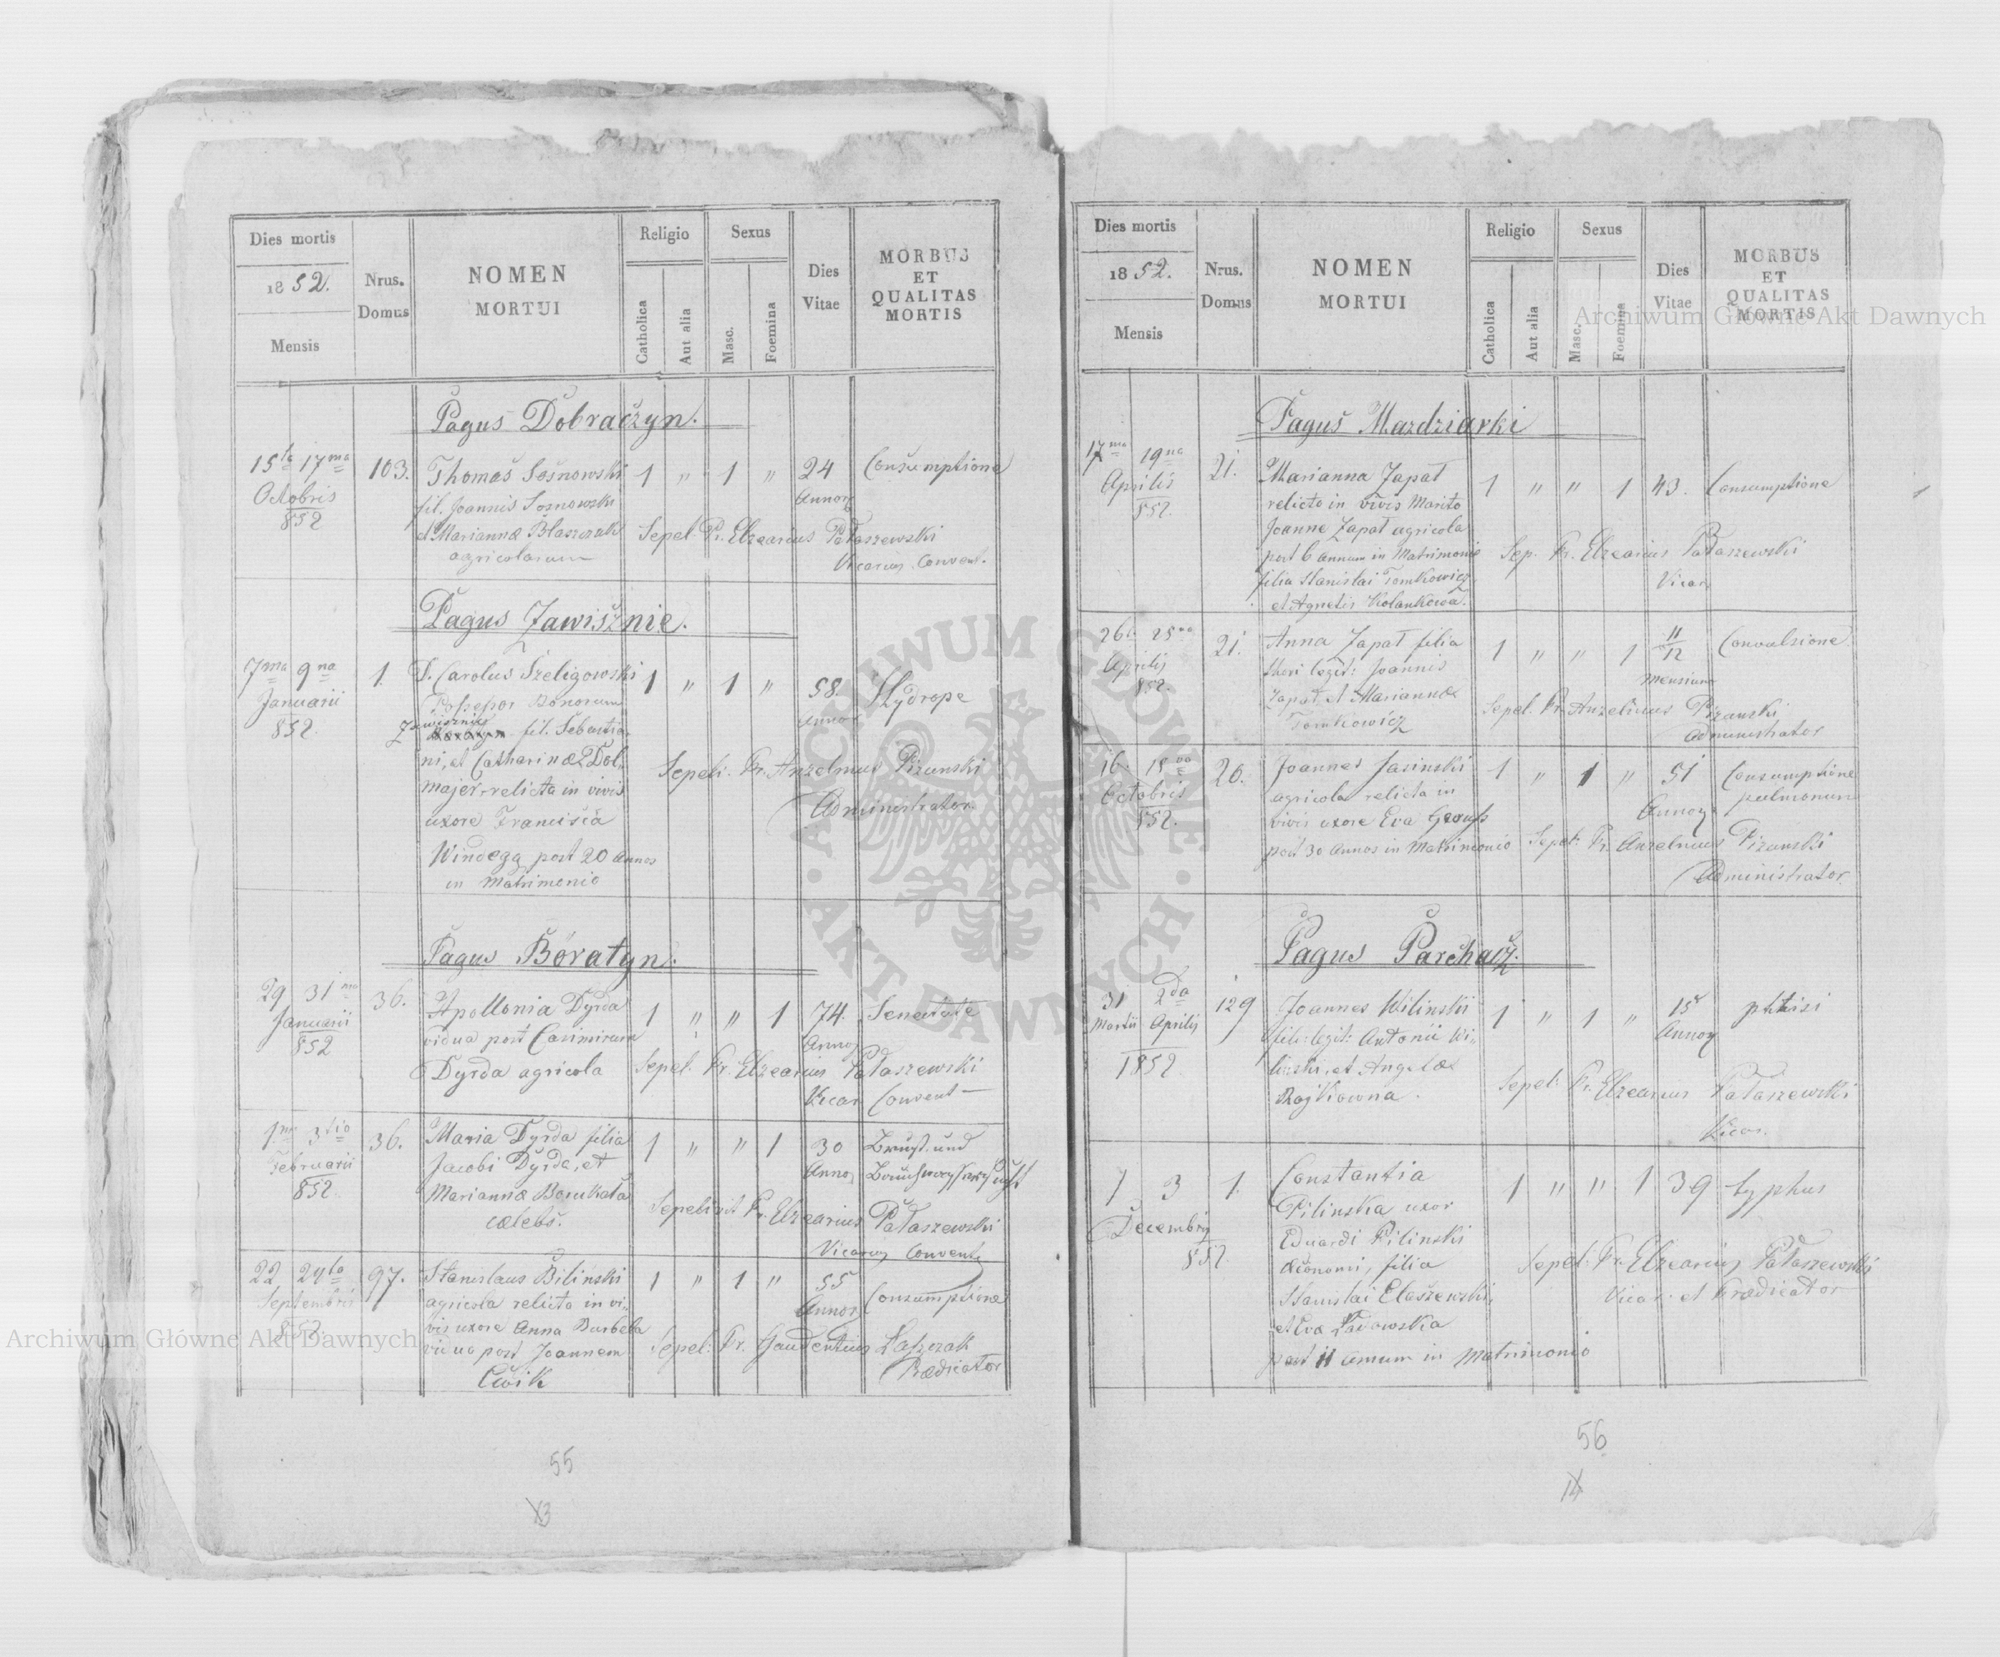 Dies mortis
1852.
Mensis
Nrus.
Domus
NOMEN
MORTUI
Religio
Catholica
Aut alia
Sexus
Masc.
Foemina
Dies
Vitae
MORBUS
ET
QUALITAS
MORTIS
Pagus Dobraczyn.
15ta 17ma
Octobris
852
103.
Thomas Sosnowski
fil. Joannis Sosnowski
et Marianna Błaszczak
agricolarum
1 " 1 "
24
Annor
Consumptione
Sepel. Pr. Elzearius Pataszewski
Vicarius Convent.
Pagus Zawisznie.
7ma 9na
Januarii
852.
1.
P. Carolus Szeligowski
Possessor Bonorum
Zawisznie fil. Sebastia
ni, et Catharinæ Dol
majer relicta in vivis
uxore Francisca
Windegg post 20 annos
in Matrimonio
1 " 1 "
58.
Annor
Hydrope
Sepeli. Pr. Anzelmus Pizunski
Administrator
Pagus Boratyn.
29 31ma
Januarii
852
36.
Apollonia Dyrda
vidua post Casimirum
Dyrda agricola
1 " " 1
74.
Annor
Senectute
Sepel. Pr. Elzearius Pataszewski
Vicar Convent
1ma 3tia
Februarii
852.
36.
Maria Dyrda filia
Jacobi Dyrda, et
Mariannæ
cælebs.
1 " " 1
30
Annor
Brust und
Sepelivit Pr. Elzearius Pataszewski
Vicarius Convent
22 24ta
Septembris
852
97.
Stanislaus Bilinski
agricola relicta in vi-
vis uxore Anna Burbela
vidua post Joannem
Cwik
1 " 1 "
55
Annor
Consumptione
Sepel: Pr. Gaudentius Łaszczak
Prædicator
55
13
Dies mortis
1852.
Mensis
Nrus.
Domus
NOMEN
MORTUI
Religio
Catholica
Aut alia
Sexus
Masc.
Foemina
Dies
Vitae
MORBUS
ET
QUALITAS
MORTIS
Pagus Mazdziarki
17ma 19na
Aprilis
852
21.
Marianna Zapał
relicto in vivis Marito
Joanne Zapał agricola
post 6 annum in Matrimonio
filia Stanislai Tomkowicz
et Agnetis Kolankowa.
1 " " 1
43.
Consumptione
Sep. Pr. Elzearius Pataszewski
Vicar
26
Aprilis
852.
21.
Anna Zapał filia
thori legit: Joannis
Zapał et Mariannæ
Tomkowicz
1 " " 1
11/12
mensium
Convulsione
Sepel. Pr. Anzelmus Pizunski
Administrator
16
Octobris
852.
20.
Joannes Jasinski
agricola relicta in
vivis uxore Eva
post 30 Annos in Matrimonio
1 " 1 "
51
Annor
Consumptione
pulmonum
Sepel: Pr. Anzelmus Pizunski
Administrator
Pagus Parchacz.
31 2da
Martii Aprilis
1852
129
Joannes Wilinski
fil: legit: Antonii Wi-
linski, et Angelæ
1 " 1 "
15
Annor
phtisi
Sepel: Pr. Elzearius Pataszewski
Vicar.
1 3
Decembris
852.
1.
Constantia
Pilinska uxor
Eduardi Pilinski
œconomi, filia
Stanislai Elaszewski
et Eva
post 11 annum in Matrimonio
1 " " 1
39
typhus
Sepel: Pr. Elzearius Pataszewski
Vicar: et Prædicator
56
14
ARCHIWUM GŁÓWNE AKT DAWNYCH
Archiwum Główne Akt Dawnych
Archiwum Główne Akt Dawnych